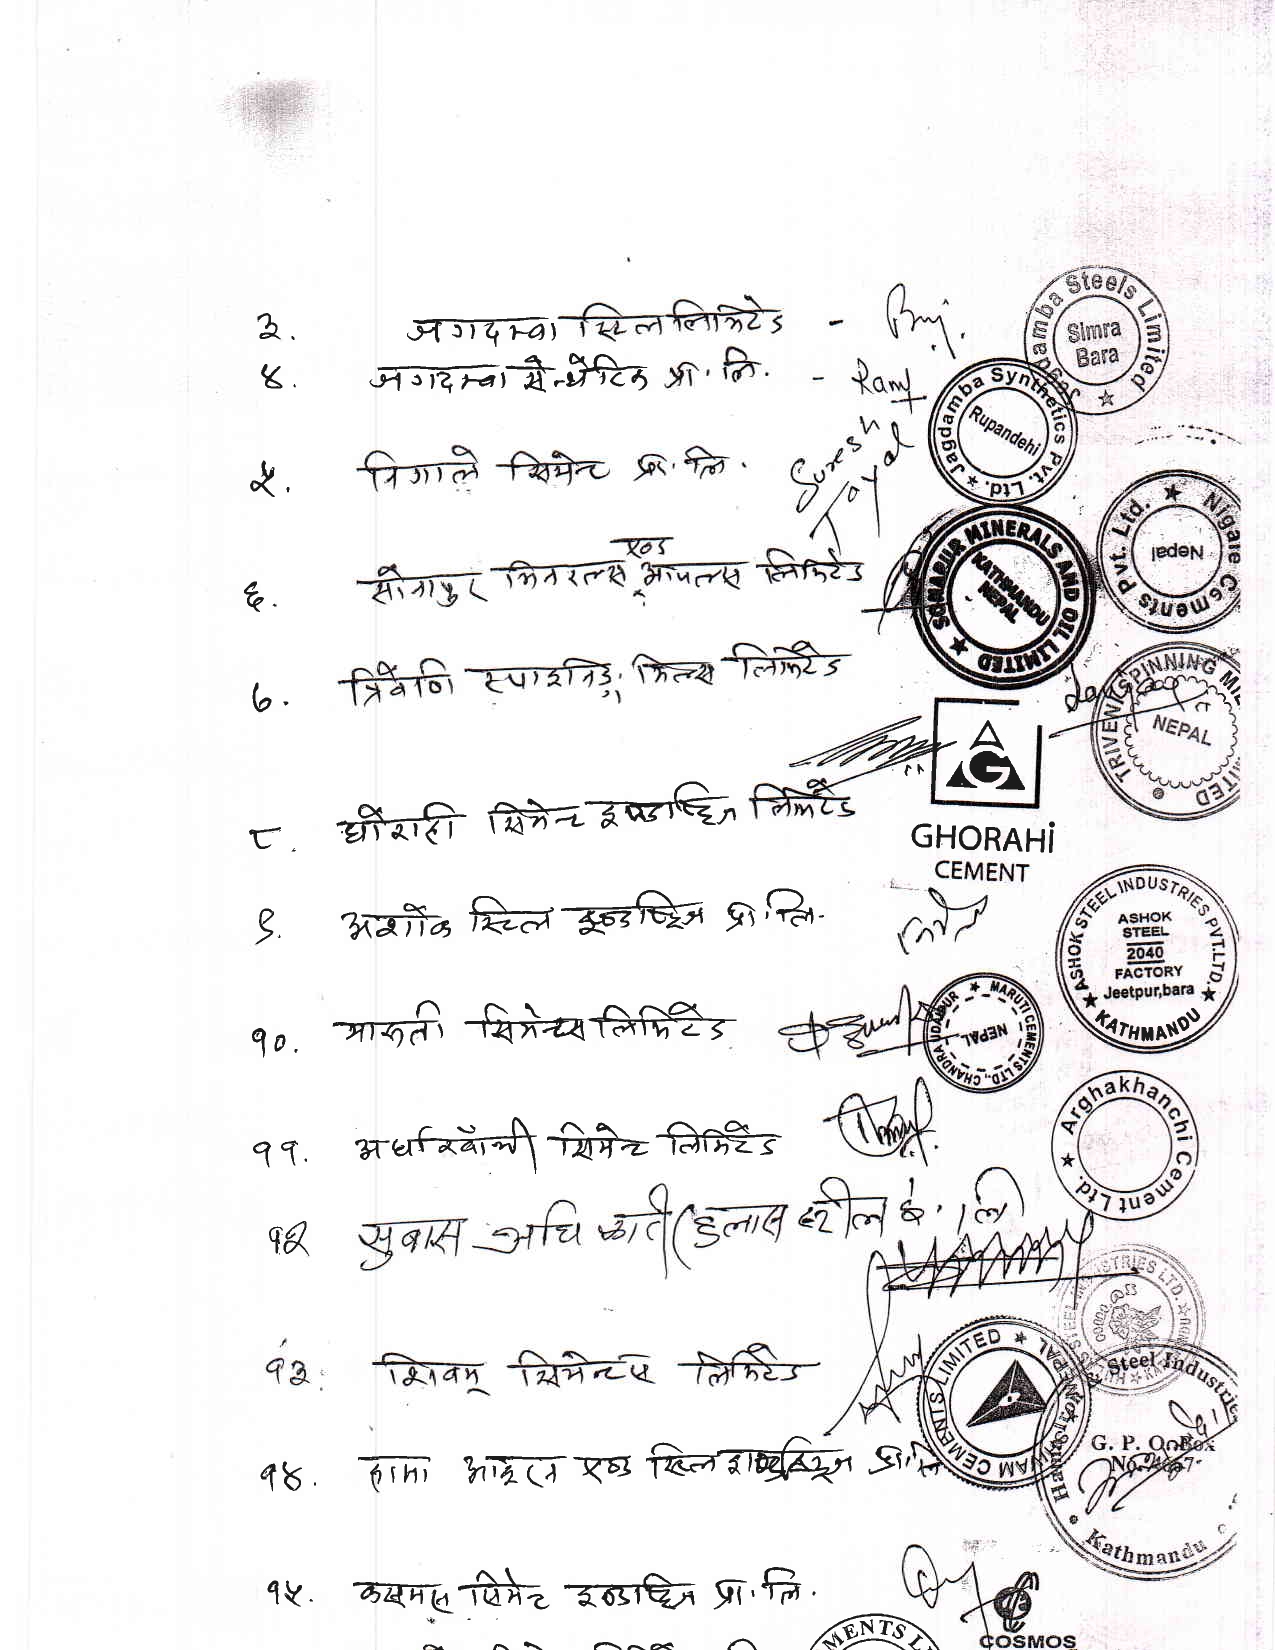 ३. जगदम्वा स्टिल लिमिटेड -
Jagdamba Steels Limited
Simra
Bara
४. जगदम्वा सेन्थेटिक प्रा. लि. - Ram
Jagdamba Synthetics Pvt. Ltd.
Rupandehi
५. निगाले सिमेन्ट प्रा. लि.
Suresh
Toyal
Nigale Cements Pvt. Ltd.
Nepal
एण्ड
६. सोनापुर मिनरल्स आयल्स लिमिटेड
SONAPUR MINERALS AND OIL LIMITED
KATHMANDU
NEPAL
७. त्रिवेणि स्पाइनिङ्ग मिल्स लिमिटेड
TRIVENI SPINNING MILLS LIMITED
NEPAL
८. घोराही सिमेन्ट इण्डाष्ट्रिज लिमिटेड
GHORAHi
CEMENT
९. अशोक स्टिल इण्डाष्ट्रिज प्रा. लि.
ASHOK STEEL INDUSTRIES PVT.LTD.
ASHOK
STEEL
2040
FACTORY
Jeetpur,bara
KATHMANDU
१०. मारुती सिमेन्टस लिमिटेड
MARUTI CEMENTS LTD., CHANDRA UDAYPUR
NEPAL
११. अर्घाखाँची सिमेन्ट लिमिटेड
Arghakhanchi Cement Ltd.
१२ सुवास अधिकारी (हुलास स्टील इ. लि
१३. शिवम् सिमेन्टस लिमिटेड
SHIVAM CEMENTS LIMITED
NEPAL
१४. हामा आइरन एण्ड स्टिल इण्डष्ट्रिज प्रा. लि
Hama Steel Industries
G. P. O. Box
Kathmandu
१५. कसमस सिमेन्ट इण्डाष्ट्रिज प्रा. लि.
COSMOS